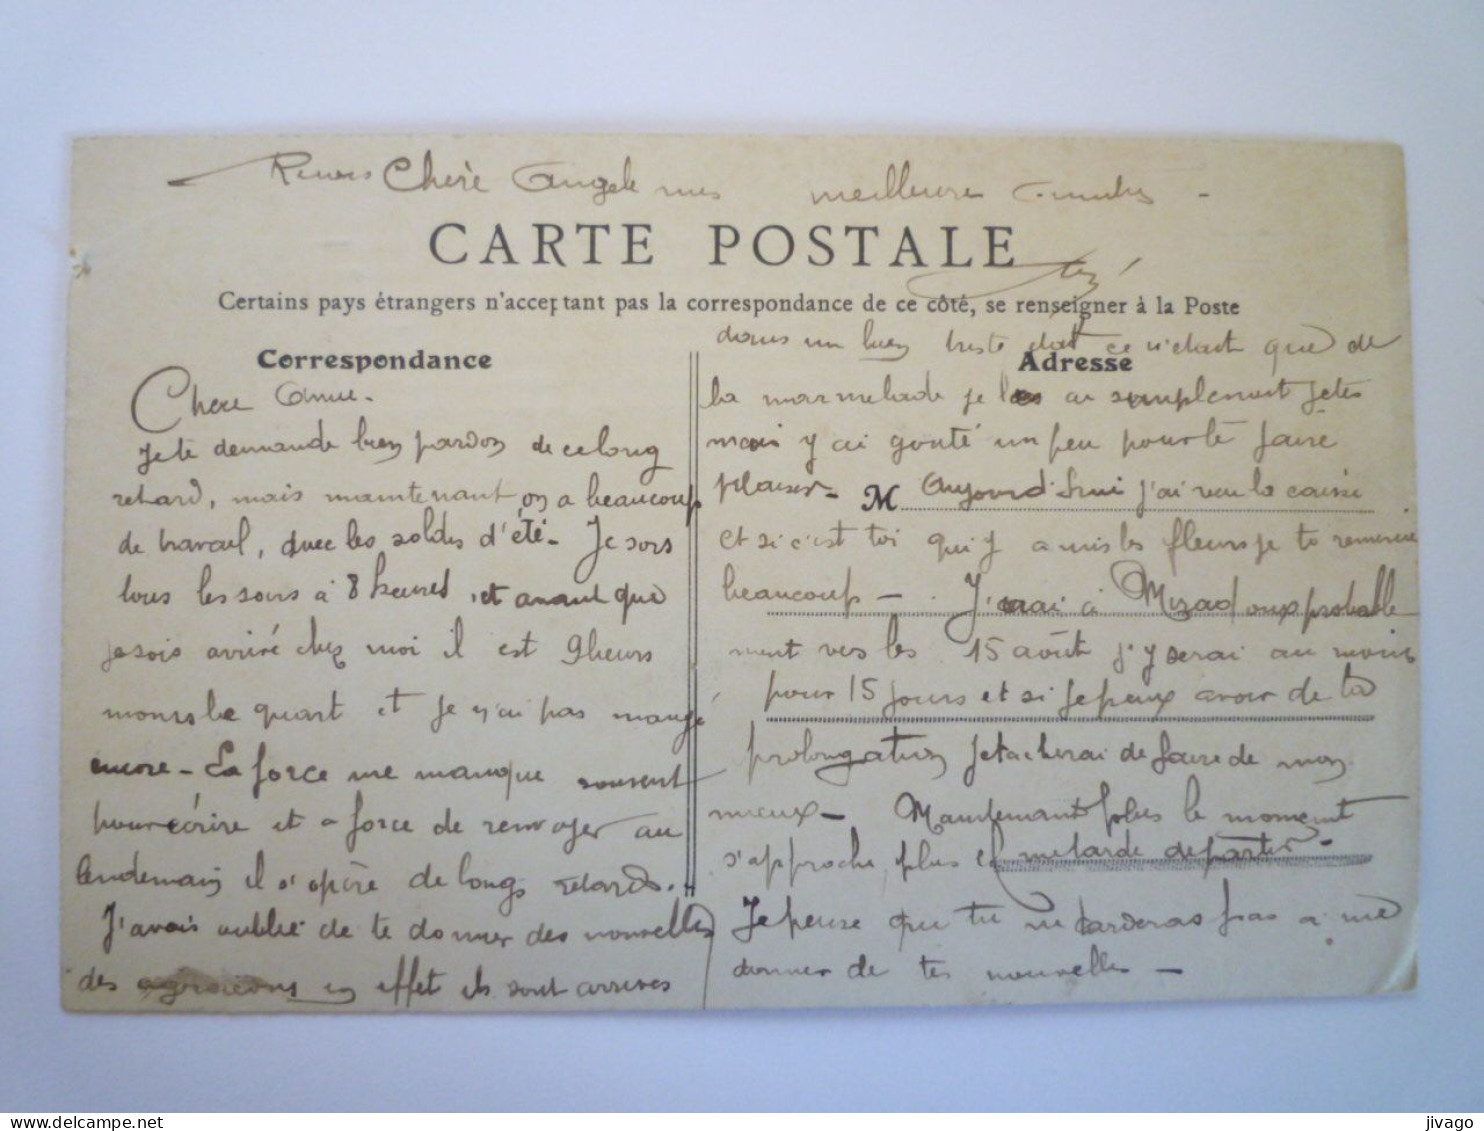 Chère Angèle mes meilleures amitiés -
CARTE POSTALE
Certains pays étrangers n'acceptant pas la correspondance de ce côté, se renseigner à la Poste
Correspondance
Chere Amie -
Je te demande bien pardon de ce long
retard, mais maintenant on a beaucoup
de travail, avec les soldes d'été - Je sors
tous les soirs à 8 heures, et avant que
je sois arrivé chez moi il est 9 heurs
moins le quart et je n'ai pas mangé
encore - La force me manque souvent
pour écrire et a force de renvoyer au
lendemain il s'opère de longs retards. -
J'avais oublié de te donner des nouvelles
des en effet ils sont arrivés
Adresse
dans un bien triste état ce n'etait que de
la marmelade je les ai simplement jetés
mais j'y ai gouté un peu pour te faire
plaisir - M Aujourd'hui j'ai reçu la caisse
et si c'est toi qui y a mis les fleurs je te remercie
beaucoup - J'irai à probable
ment vers les 15 août j'y serai au moins
pour 15 jours et si je peux avoir de la
prolongation je tacherai de faire de mon
mieux - Maintenant plus le moment
s'approche, plus il me tarde de partir -
Je pense que tu ne tarderas pas a me
donner de tes nouvelles -
jivago